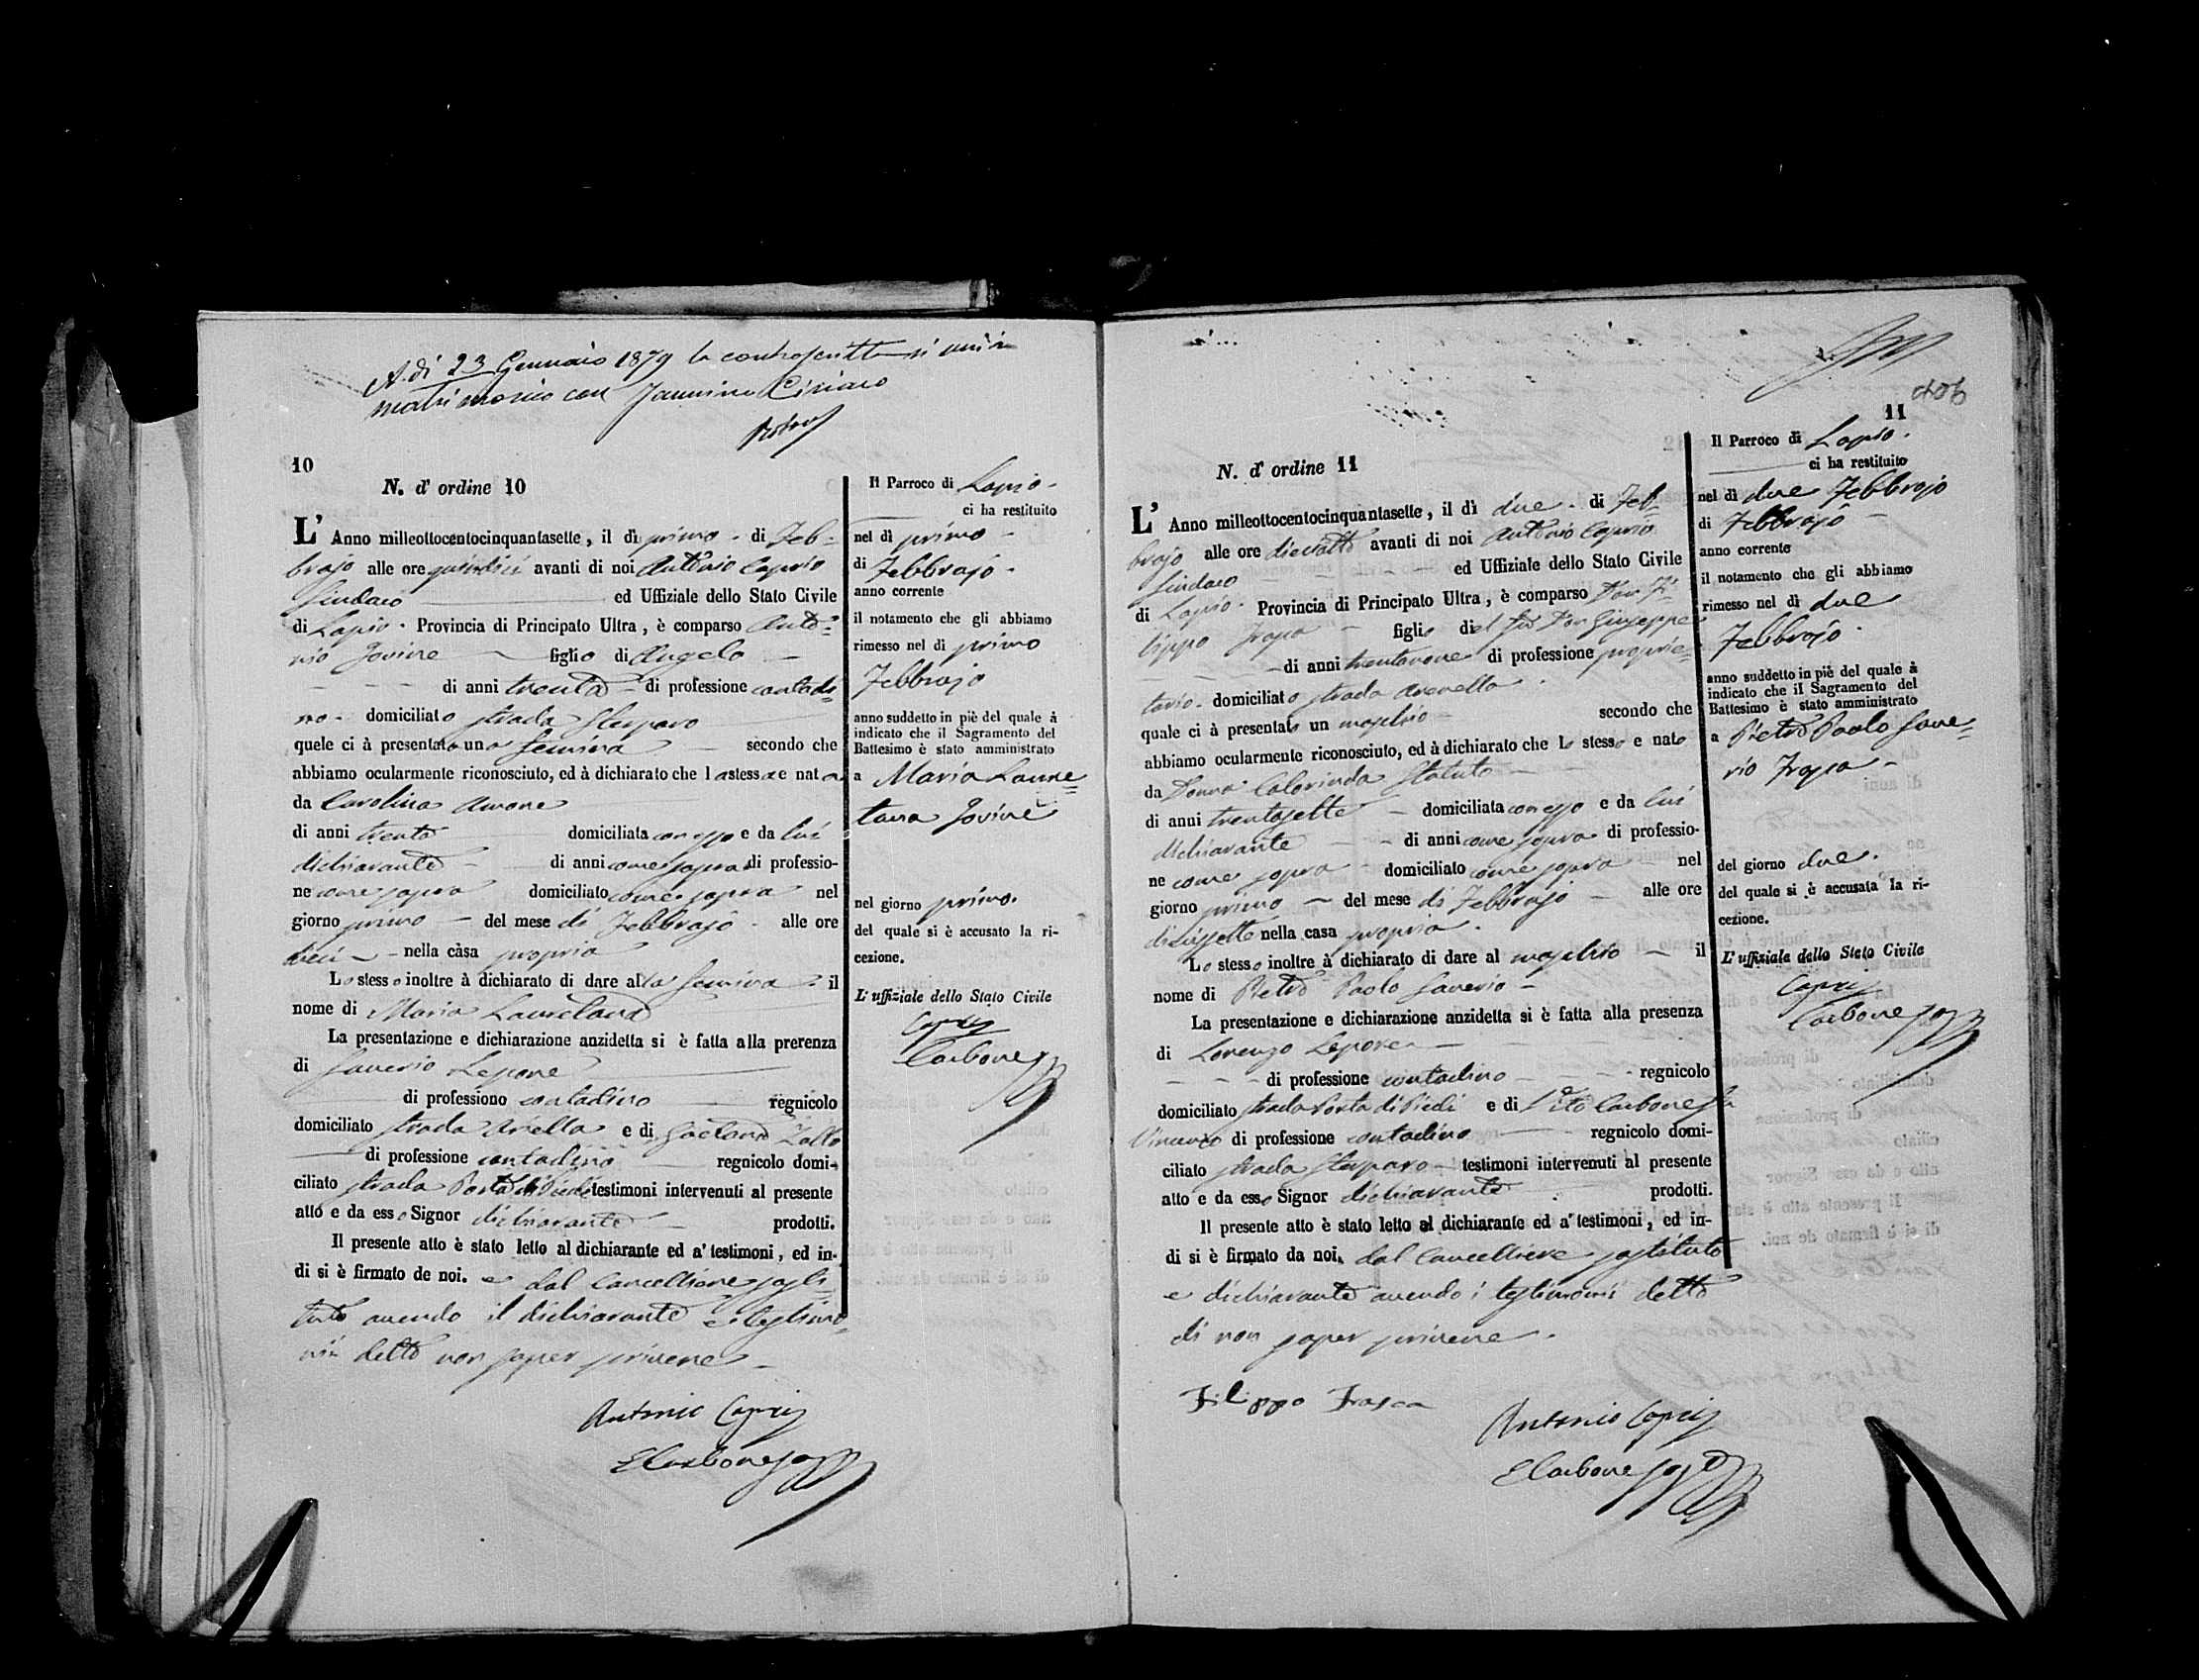 A dì 23 Gennaio 1879 la controscritta si unì in
matrimonio con Jannino Ciriaco
10
N. d' ordine 10
L' Anno milleottocentocinquantasette, il dì primo di Feb-
brajo alle ore quindici avanti di noi Antonio Caprio
Sindaco ed Uffiziale dello Stato Civile
di Lapio. Provincia di Principato Ultra, è comparso Anto-
nio Jovine figlio di Angelo
di anni trenta di professione contadi-
no. domiciliato strada
quele ci à presentata una femina secondo che
abbiamo ocularmente riconosciuto, ed à dichiarato che la stessa e nata
da Carolina
di anni trenta domiciliata con esso e da lui
dichiarante di anni come sopra di professio-
ne come sopra domiciliato come sopra nel
giorno primo del mese di Febbrajo alle ore
dieci nella càsa propria
Lo stesso inoltre à dichiarato di dare alla femina il
nome di Maria Lauretana
La presentazione e dichiarazione anzidetta si è fatta alla prerenza
di Saverio Lepore
di professiono contadino regnicolo
domiciliato strada Ariella e di Gaetano Zollo
di professione contadino regnicolo domi-
ciliato strada Porta di Piedi testimoni intervenuti al presente
atto e da esso Signor dichiarante prodotti.
Il presente atto è stato letto al dichiarante ed a' testimoni, ed in-
di si è firmato de noi. e dal Cancelliere sosti-
tuto avendo il dichiarante e testimo-
nii detto non saper scrivere
Antonio Caprio
E Carbone
Il Parroco di Lapio.
ci ha restituito
nel dì primo
di Febbrajo.
anno corrente
il notamento che gli abbiamo
rimesso nel dì primo
Febbrajo
anno suddetto in piè del quale à
indicato che il Sagramento del
Battesimo è stato amministrato
a Maria Laure-
tana Jovine
nel giorno primo.
del quale si è accusato la ri-
cezione.
L' uffiziale dello Stato Civile
Caprio
Carbone
406
11
N. d' ordine 11
L' Anno milleottocentocinquantasette, il dì due di Feb-
brajo alle ore dieciotto avanti di noi Antonio Caprio
Sindaco ed Uffiziale dello Stato Civile
di Lapio. Provincia di Principato Ultra, è comparso Don Fi-
lippo Frasca figlio del fu Don Giuseppe
di anni trentanove di professione proprie-
tario. domiciliato strada Arenella.
quale ci à presentato un maschio secondo che
abbiamo ocularmente riconosciuto, ed à dichiarato che Lo stesso e nato
da Donna Calorinda Statuto
di anni trentasette domiciliata con esso e da lui
dichiarante di anni come sopra di professio-
ne come sopra domiciliato come sopra nel
giorno primo del mese di Febbrajo alle ore
diciessette nella casa propria.
Lo stesso inoltre à dichiarato di dare al maschio il
nome di Pietro Paolo Saverio
La presentazione e dichiarazione anzidetta si è fatta alla presenza
di Lorenzo Lepore
di professione contadino regnicolo
domiciliato strada Porta di Piedi e di Vito Carbone fu
Vincenzo di professione contadino regnicolo domi-
ciliato strada testimoni intervenuti al presente
atto e da esso Signor dichiarante prodotti.
Il presente atto è stato letto al dichiarante ed a' testimoni, ed in-
di si è firmato da noi, dal Cancelliere sostituto
e dichiarante avendo i testimonii detto
di non saper scrivere.
Filippo Frasca
Antonio Caprio
E Carbone
Il Parroco di Lapio.
ci ha restituito
nel dì due Febbrajo
di Febbrajo
anno corrente
il notamento che gli abbiamo
rimesso nel dì due
Febbrajo.
anno suddetto in piè del quale à
indicato che il Sagramento del
Battesimo è stato amministrato
a Pietro Paolo Save-
rio Frasca
del giorno due.
del quale si è accusata la ri-
cezione.
L' uffiziale dello Stato Civile
Caprio
Carbone